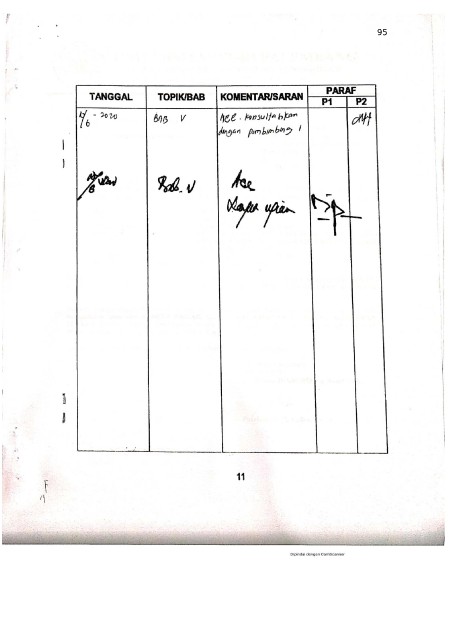 95
TANGGAL TOPIK/BAB KOMENTAR/SARAN PARAF
P1 P2
/6 - 2020 BAB V Acc. Konsultasikan
dengan pembimbing 1
Bab. V Acc
ujian
11
Dipindai dengan CamScanner